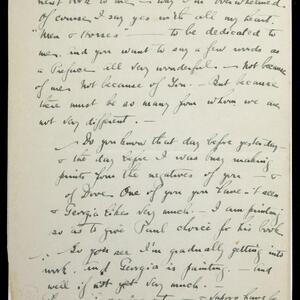 work to me — why I'm overwhelmed
Of course I say yes with all my heart.
— to be dedicated to
me. and you want to say a few words as
a Preface all very wonderful. — Not because
of me. Not because of You. — But because
there must be so many from whom we are
not very different. —
— Do you know that day before yesterday —
& the day before I was busy making
prints from the negatives of you — &
of Dove. One of you you haven't seen
& Georgia likes very much. — I am printing
so as to give Paul choice for his book
— So you see I'm gradually getting into
work. and Georgia is painting. — and
well if not very much. —